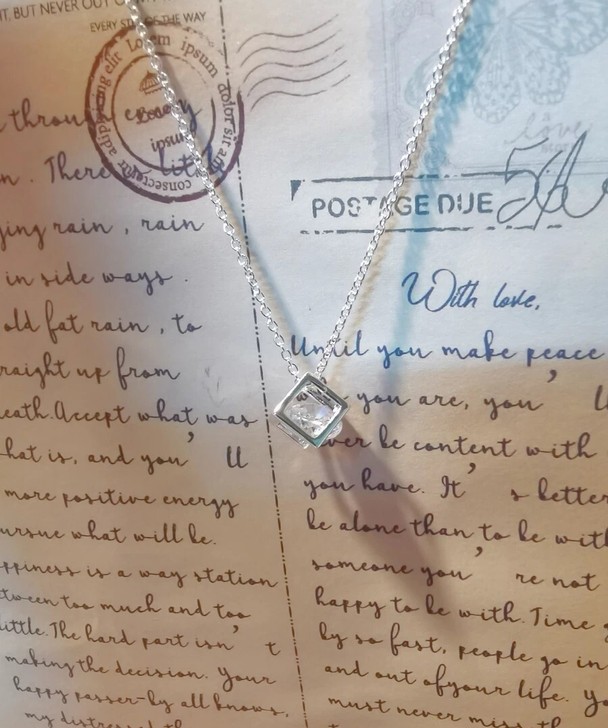 IT, BUT NEVER OUT
EVERY STAGE THE WAY
Lorem ipsum dolor sit am
consectetur adipiscing elit
ipsum
through
n. There little
ging rain, rain
in side ways.
old fat rain, to
raight up from
eath. Accept what was
hat is, and you' ll
more positive energy
ursue what will be.
ppiness is a way station
tween too much and too
little. The hard part isn' t
making the decision. Your
happy passer-by all knows,
my distressed th
love
POSTAGE DUE
With love,
Until you make peace
you are, you' ll
ver be content with
you have. It' s better
be alone than to be with
someone you' re not
happy to be with. Time g
by so fast, people go in
and out ofyour life. Y
must never miss th